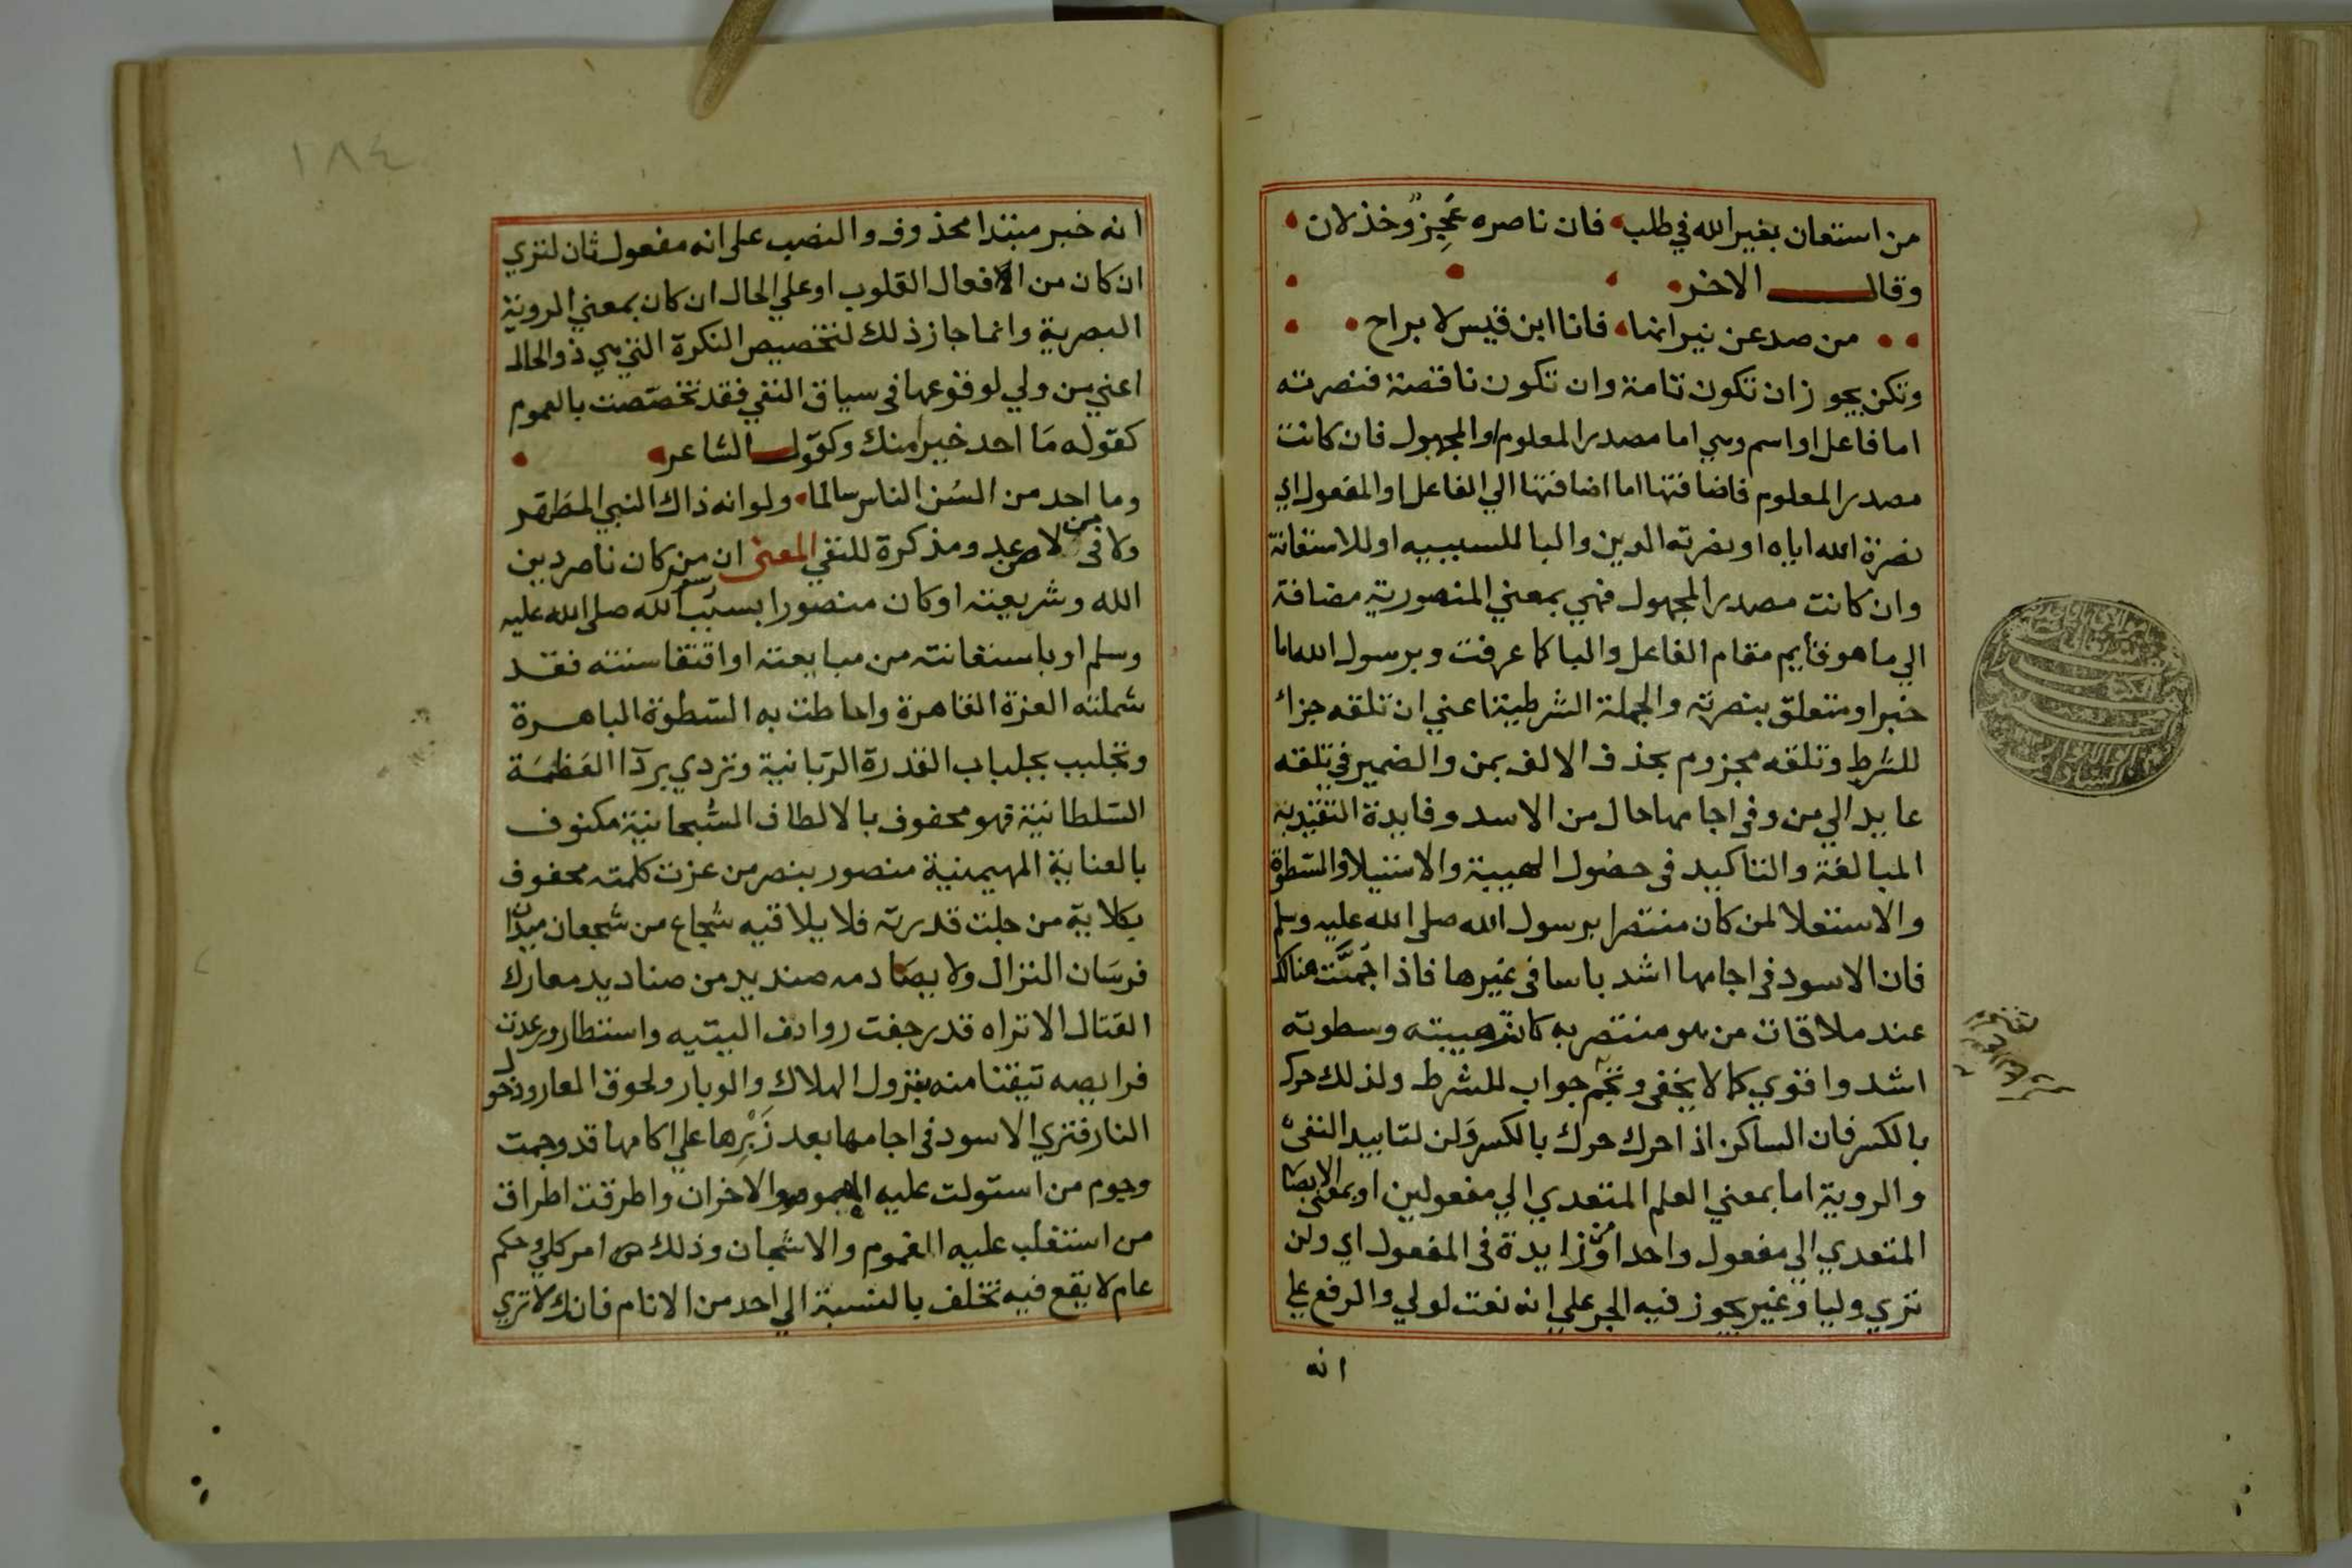 من استعان بغير الله في طلب فان ناصره عَجِزٌ وخذلان
وقال الاخر
من صد عن نيرانها فانا ابن قيس لا براح
وتكن يجوز ان تكون تامة وان تكون ناقصة فنصرته
اما فاعل او اسم وهي اما مصدر المعلوم او المجهول فان كانت
مصدر المعلوم فاضافتها اما اضافتها الي الفاعل او المفعول اي
نصرة الله اياه او نصرته الدين والبا للسببيه او للاستعانة
وان كانت مصدر المجهول فهي بمعني المنصورية مضافة
الي ما هو قايم مقام الفاعل والبا كما عرفت وبرسول الله اما
خبر او متعلق بنصرته والجملة الشرطية اعني ان تلقه جزاء
للشرط وتلقه مجزوم بحذف الالف بمن والضمير في تلقه
عايد الي من وفي اجامها حال من الاسد وفايدة التقييد به
المبالغة والتاكيد في حصُول الهيبة والاستيلا والسَّطوة
والاستعلا لمن كان منتصرا برسول الله صلى الله عليه وسلم
فان الاسود في اجامها اشد باسا في غيرها فاذا جُمِّت هناك
عند ملاقات من هو منتصر به كانت هيبته وسطوته
اشد واقوي كما لا يخفى وتجم جواب للشرط ولذلك حرك
بالكسر فان الساكن اذا حرك حرك بالكسر ولن لتاييد النفى
والروية اما بمعني العلم المتعدي الي مفعولين او بمعنى الابصا
المتعدي الي مفعول واحد او من زايدة في المفعول اي ولن
تري وليا وغير يجوز فيه الجر علي انه نعت لولي والرفع علي
انه
١٨٤
انه خبر مبتدا محذوف والنصب على انه مفعول ثان لتري
ان كان من الافعال القلوب او علي الحال ان كان بمعني الروية
البصرية وانما جاز ذلك لتخصيص النكرة التي هي ذو الحال
اعني من ولي لوقوعها في سياق النفي فقد تخصّصت بالعموم
كقوله مَا احد خيرا منك وكقول الشاعر
وما احد من السُن الناس سالما ولو انه ذاك النبي المطهّر
ولا في من لا عد ومذكرة للنفي المعنى ان من كان ناصر دين
الله وشريعته او كان منصورا بسبب رسول الله صلى الله عليه
وسلم او باستعانته من مبايعته او اقتفا سنته فقد
شملته العزة القاهرة واحاطت به السّطوة الباهرة
وتجلبب بجلباب القدرة الرّبانية وتردي بردآ العَظمَة
السّلطانية فهو محفوف بالالطاف السُّبحانية مكنوف
بالعناية المهيمنية منصور بنصر من عزت كلمته محفوف
بكلاية من جلت قدرته فلا يلاقيه شجاع من شجعان ميدان
فرسَان النزال ولا يصَادمه صنديد من صناديد معارك
القتال الا تراه قد رجفت روادف اليتيه واستطار ورعدت
فرايصه تيقنا منه بنزول الهلاك والوبار ولحوق العار ودخول
النار فتري الاسود في اجامها بعد زَبْرِها علي اكامها قد وجمت
وجوم من استولت عليه الهموم والاخزان واطرقت اطراق
من استغلب عليه الغموم والاشجان وذلك امر كلي وحكم
عام لا يقع فيه تخلف بالنسبة الي احد من الانام فانك لا تري